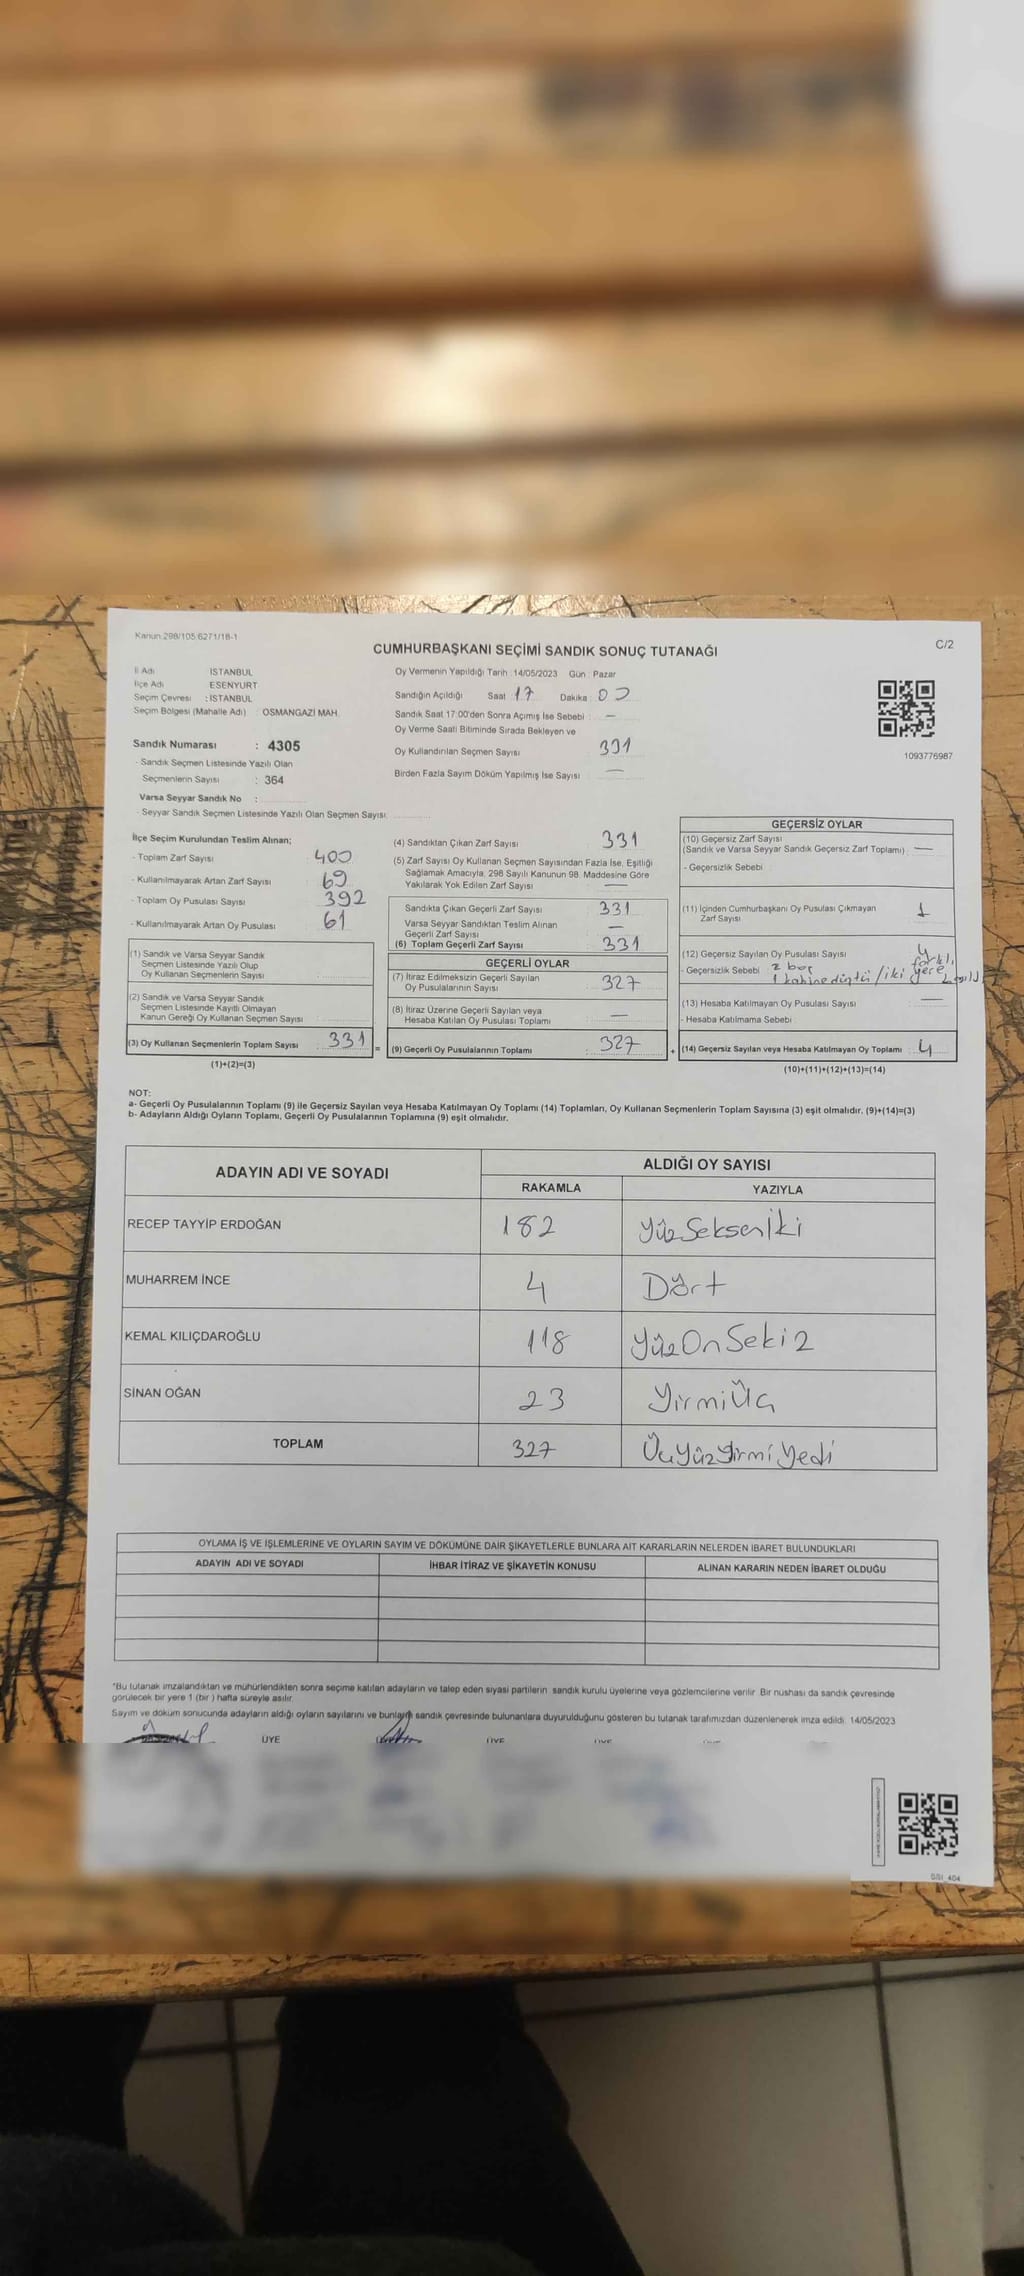 Kanun 298/105 6271/18-1
C/2
CUMHURBAŞKANI SEÇİMİ SANDIK SONUÇ TUTANAĞI
İl Adı İSTANBUL
İlçe Adı ESENYURT
Seçim Çevresi : İSTANBUL
Seçim Bölgesi (Mahalle Adı) : OSMANGAZİ MAH.
Sandık Numarası : 4305
- Sandık Seçmen Listesinde Yazılı Olan
Seçmenlerin Sayısı : 364
Varsa Seyyar Sandık No :
- Seyyar Sandık Seçmen Listesinde Yazılı Olan Seçmen Sayısı:
Oy Vermenin Yapıldığı Tarih :14/05/2023 Gün : Pazar
Sandığın Açıldığı Saat 17 Dakika 00
Sandık Saat 17:00'den Sonra Açımış İse Sebebi : —
Oy Verme Saati Bitiminde Sırada Bekleyen ve
Oy Kullandırılan Seçmen Sayısı 331
Birden Fazla Sayım Döküm Yapılmış İse Sayısı —
1093776987
İlçe Seçim Kurulundan Teslim Alınan;
- Toplam Zarf Sayısı 400
- Kullanılmayarak Artan Zarf Sayısı 69
- Toplam Oy Pusulası Sayısı 392
- Kullanılmayarak Artan Oy Pusulası 61
(1) Sandık ve Varsa Seyyar Sandık
Seçmen Listesinde Yazılı Olup
Oy Kullanan Seçmenlerin Sayısı
(2) Sandık ve Varsa Seyyar Sandık
Seçmen Listesinde Kayıtlı Olmayan
Kanun Gereği Oy Kullanan Seçmen Sayısı
(3) Oy Kullanan Seçmenlerin Toplam Sayısı : 331 =
(1)+(2)=(3)
(4) Sandıktan Çıkan Zarf Sayısı 331
(5) Zarf Sayısı Oy Kullanan Seçmen Sayısından Fazla İse, Eşitliği
Sağlamak Amacıyla, 298 Sayılı Kanunun 98. Maddesine Göre
Yakılarak Yok Edilen Zarf Sayısı —
Sandıkta Çıkan Geçerli Zarf Sayısı 331
Varsa Seyyar Sandıktan Teslim Alınan
Geçerli Zarf Sayısı —
(6) Toplam Geçerli Zarf Sayısı 331
GEÇERLİ OYLAR
(7) İtiraz Edilmeksizin Geçerli Sayılan
Oy Pusulalarının Sayısı 327
(8) İtiraz Üzerine Geçerli Sayılan veya
Hesaba Katılan Oy Pusulası Toplamı —
(9) Geçerli Oy Pusulalarının Toplamı 327 +
GEÇERSİZ OYLAR
(10) Geçersiz Zarf Sayısı
(Sandık ve Varsa Seyyar Sandık Geçersiz Zarf Toplamı) : —
- Geçersizlik Sebebi
(11) İçinden Cumhurbaşkanı Oy Pusulası Çıkmayan
Zarf Sayısı 1
(12) Geçersiz Sayılan Oy Pusulası Sayısı 4
- Geçersizlik Sebebi 2 boş farklı
1 kabine düştü / iki yere
(13) Hesaba Katılmayan Oy Pusulası Sayısı —
- Hesaba Katılmama Sebebi
(14) Geçersiz Sayılan veya Hesaba Katılmayan Oy Toplamı 4
(10)+(11)+(12)+(13)=(14)
NOT:
a- Geçerli Oy Pusulalarının Toplamı (9) ile Geçersiz Sayılan veya Hesaba Katılmayan Oy Toplamı (14) Toplamları, Oy Kullanan Seçmenlerin Toplam Sayısına (3) eşit olmalıdır. (9)+(14)=(3)
b- Adayların Aldığı Oyların Toplamı, Geçerli Oy Pusulalarının Toplamına (9) eşit olmalıdır.
ADAYIN ADI VE SOYADI ALDIĞI OY SAYISI
RAKAMLA YAZIYLA
RECEP TAYYİP ERDOĞAN 182 YüzSeksenİki
MUHARREM İNCE 4 Dört
KEMAL KILIÇDAROĞLU 118 YüzOnSekiz
SİNAN OĞAN 23 YirmiÜç
TOPLAM 327 ÜçYüzYirmiYedi
OYLAMA İŞ VE İŞLEMLERİNE VE OYLARIN SAYIM VE DÖKÜMÜNE DAİR ŞİKAYETLERLE BUNLARA AİT KARARLARIN NELERDEN İBARET BULUNDUKLARI
ADAYIN ADI VE SOYADI İHBAR İTİRAZ VE ŞİKAYETİN KONUSU ALINAN KARARIN NEDEN İBARET OLDUĞU
*Bu tutanak imzalandıktan ve mühürlendikten sonra seçime katılan adayların ve talep eden siyasi partilerin sandık kurulu üyelerine veya gözlemcilerine verilir. Bir nüshası da sandık çevresinde
görülecek bir yere 1 (bir) hafta süreyle asılır.
Sayım ve döküm sonucunda adayların aldığı oyların sayılarını ve bunların sandık çevresinde bulunanlara duyurulduğunu gösteren bu tutanak tarafımızdan düzenlenerek imza edildi. 14/05/2023
ÜYE ÜYE ÜYE
SSI_404